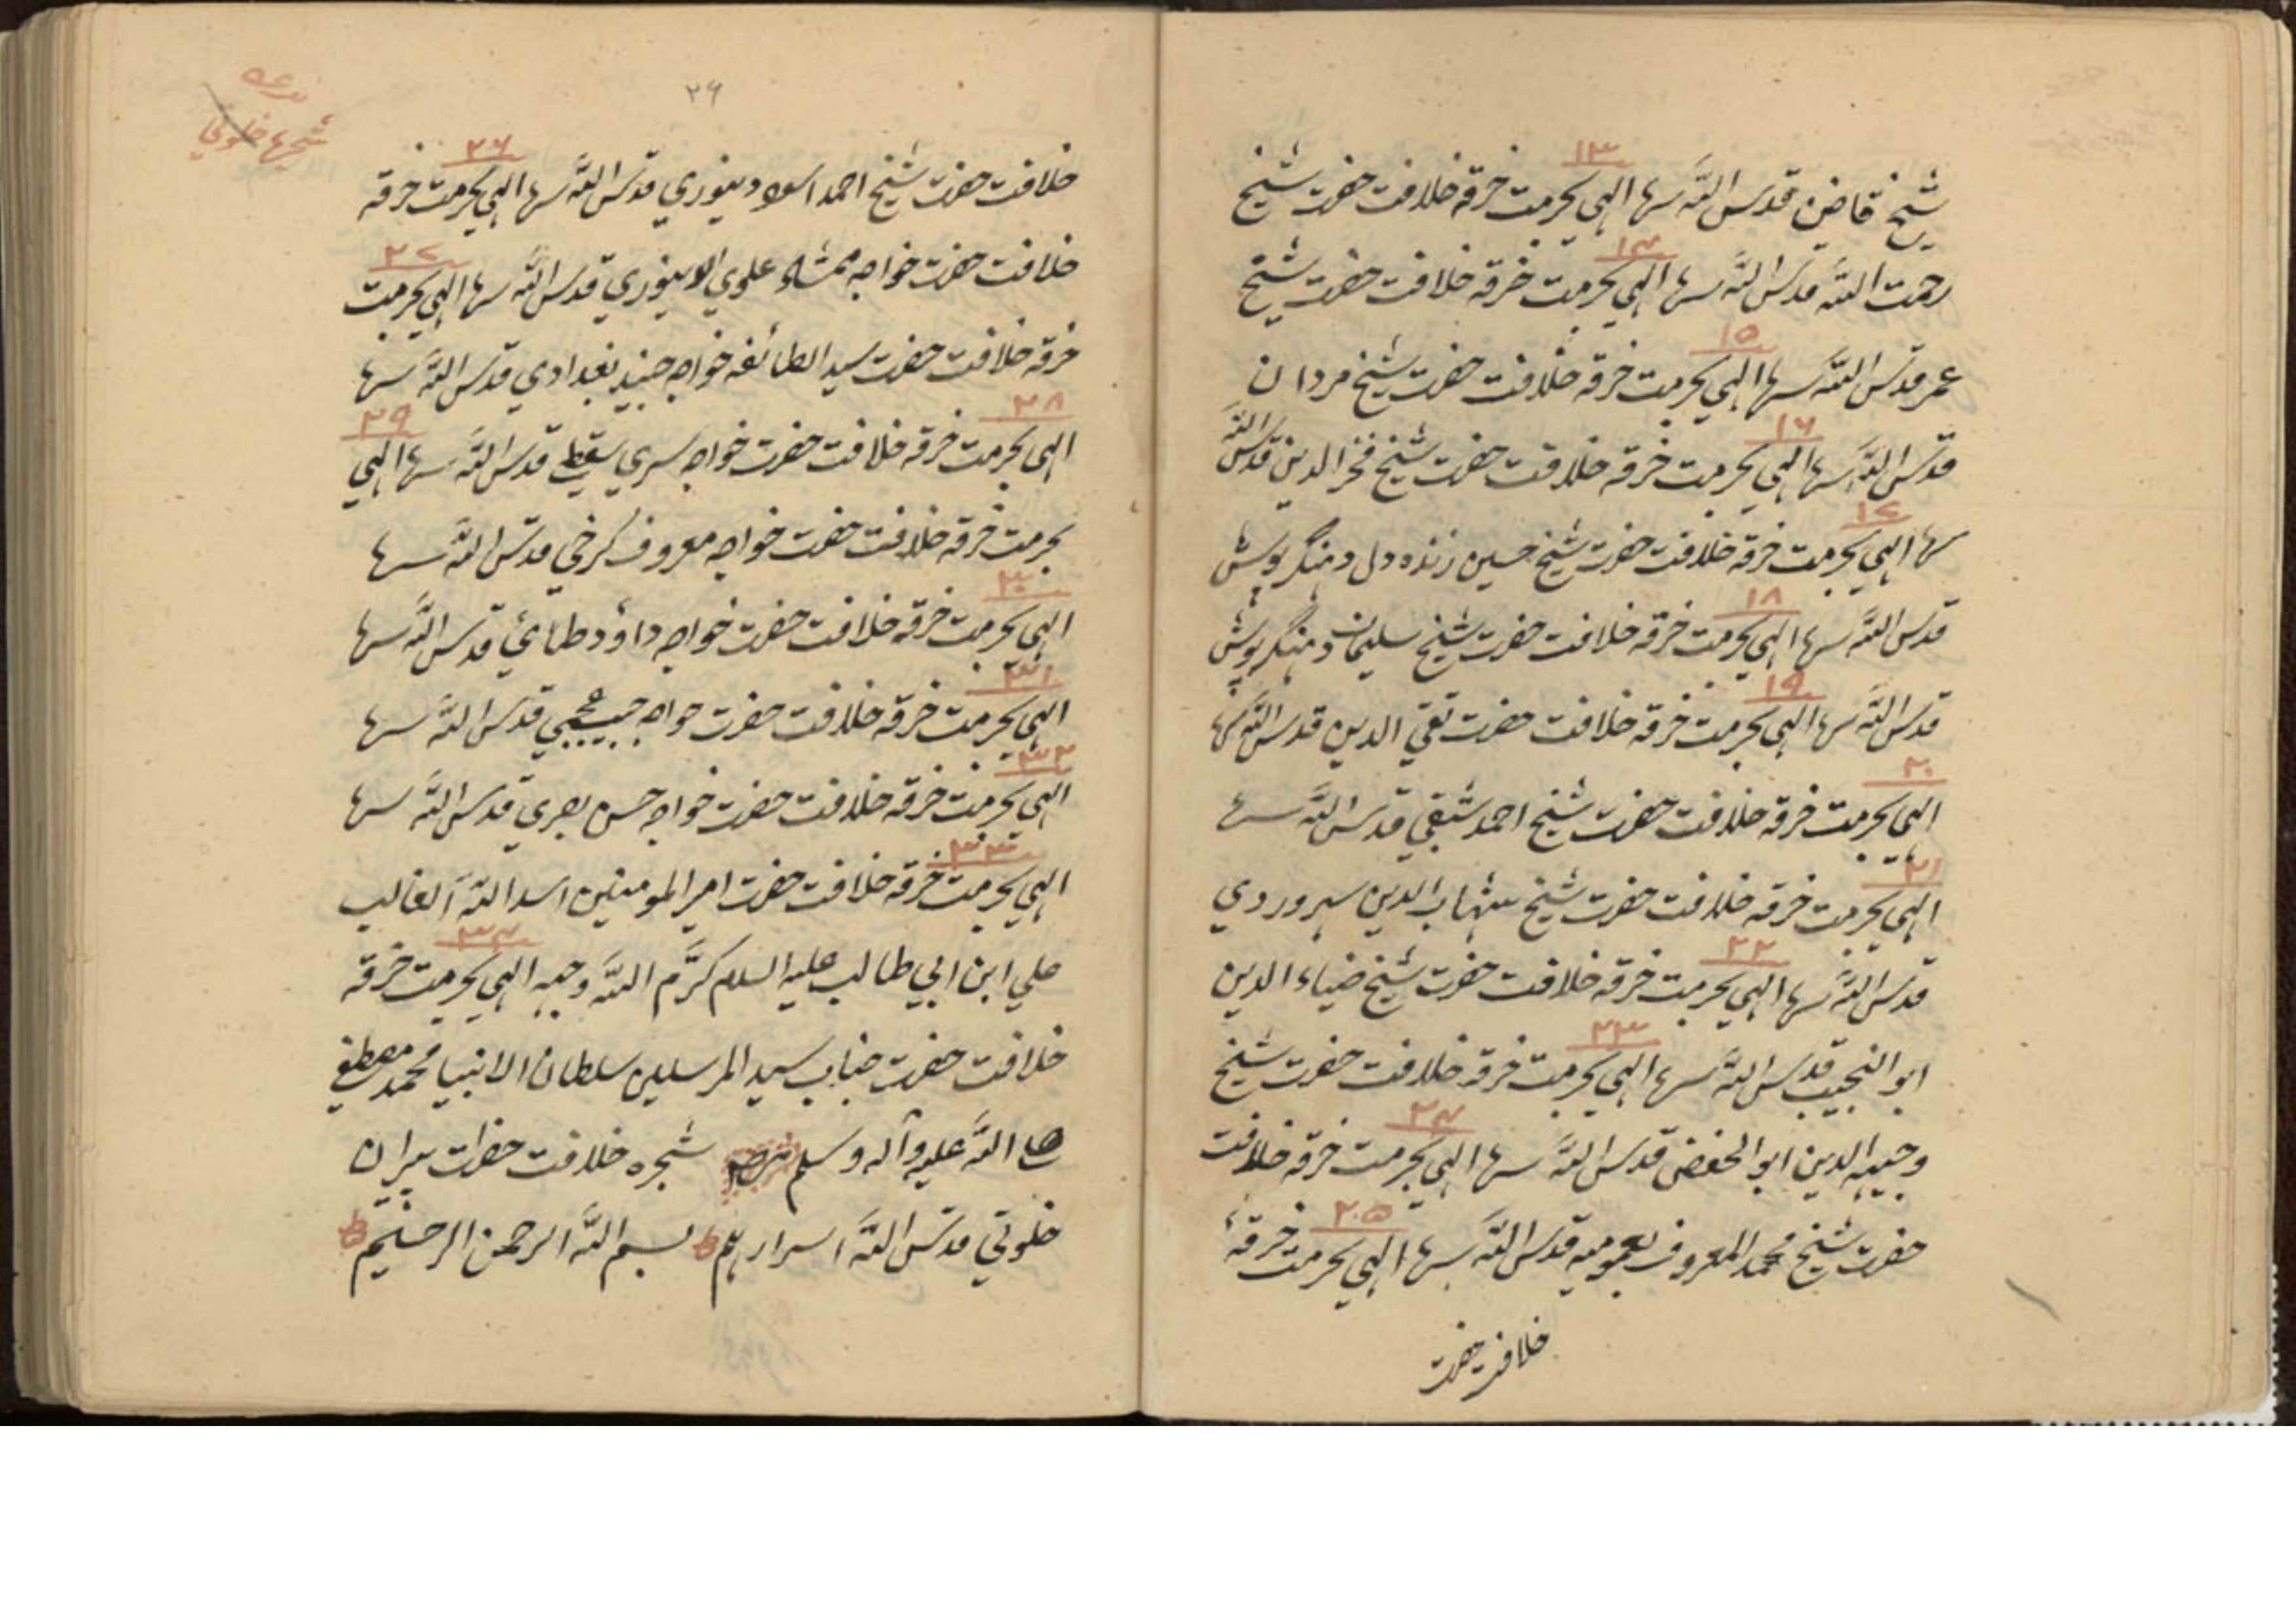 ۱۳
شیخ قاضن قدس اللّه سرها الهی بحرمت خرقه خلافت حضرت شیخ
۱۴
رحمت اللّه قدس اللّه سرها الهی بحرمت خرقه خلافت حضرت شیخ
۱۵
عمر قدس اللّه سرها الهی بحرمت خرقه خلافت حضرت شیخ مردان
۱۶
قدس اللّه سرها الهی بحرمت خرقه خلافت حضرت شیخ فخر الدین قدس اللّه
۱۷
سرها الهی بحرمت خرقه خلافت حضرت شیخ حسین زنده دل دهنکر پوش
۱۸
قدس اللّه سرها الهی بحرمت خرقه خلافت حضرت شیخ سلیمان دهنکر پوش
۱۹
قدس اللّه سرها الهی بحرمت خرقه خلافت حضرت تقی الدین قدس اللّه سرها
۲۰
الهی بحرمت خرقه خلافت حضرت شیخ احمد شقی قدس اللّه سرها
۲۱
الهی بحرمت خرقه خلافت حضرت شیخ شهاب الدین سهروردی
۲۲
قدس اللّه سرها الهی بحرمت خرقه خلافت حضرت شیخ ضیاء الدین
۲۳
ابو النجیب قدس اللّه سرها الهی بحرمت خرقه خلافت حضرت شیخ
۲۴
وجیه الدین ابو الحفض قدس اللّه سرها الهی بحرمت خرقه خلافت
۲۵
حضرت شیخ محمد المعروف بعمویه قدس اللّه سرها الهی بحرمت خرقهٔ
خلافت حضرت
۲۶
شجرها خلوتی
۲۶
خلافت حضرت شیخ احمد اسود دینوری قدس اللّه سرها الهی بحرمت خرقه
۲۷
خلافت حضرت خواجه ممشاد علوی الدینوری قدس اللّه سرها الهی بحرمت
خرقه خلافت حضرت سید الطائفه خواجه جنید بغدادی قدس اللّه سرها
۲۸ ۲۹
الهی بحرمت خرقه خلافت حضرت خواجه سری سقطی قدس اللّه سرها الهی
بحرمت خرقه خلافت حضرت خواجه معروف کرخی قدس اللّه سرها
۳۰
الهی بحرمت خرقه خلافت حضرت خواجه داؤد طائی قدس اللّه سرها
۳۱
الهی بحرمت خرقه خلافت حضرت خواجه حبیب عجمی قدس اللّه سرها
۳۲
الهی بحرمت خرقه خلافت حضرت خواجه حسن بصری قدس اللّه سرها
۳۳
الهی بحرمت خرقه خلافت حضرت امیر المومنین اسد اللّه الغالب
۳۴
علی ابن ابی طالب علیه السلام کرّم اللّه وجهه الهی بحرمت خرقه
خلافت حضرت جناب سید المرسلین سلطان الانبیا محمد مصطفی
صلی اللّه علیه وآله وسلم شجره خلافت حضرات پیران
خلوتی قدس اللّه اسرارهم ط بسم اللّه الرحمن الرحیم ط